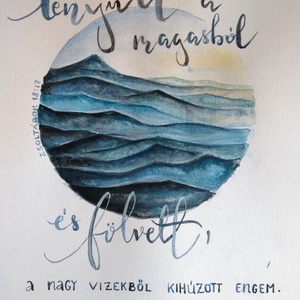 lenyúlt a
magasból
ZSOLTÁROK 18:17
és fölvett,
a nagy vizekből kihúzott engem.